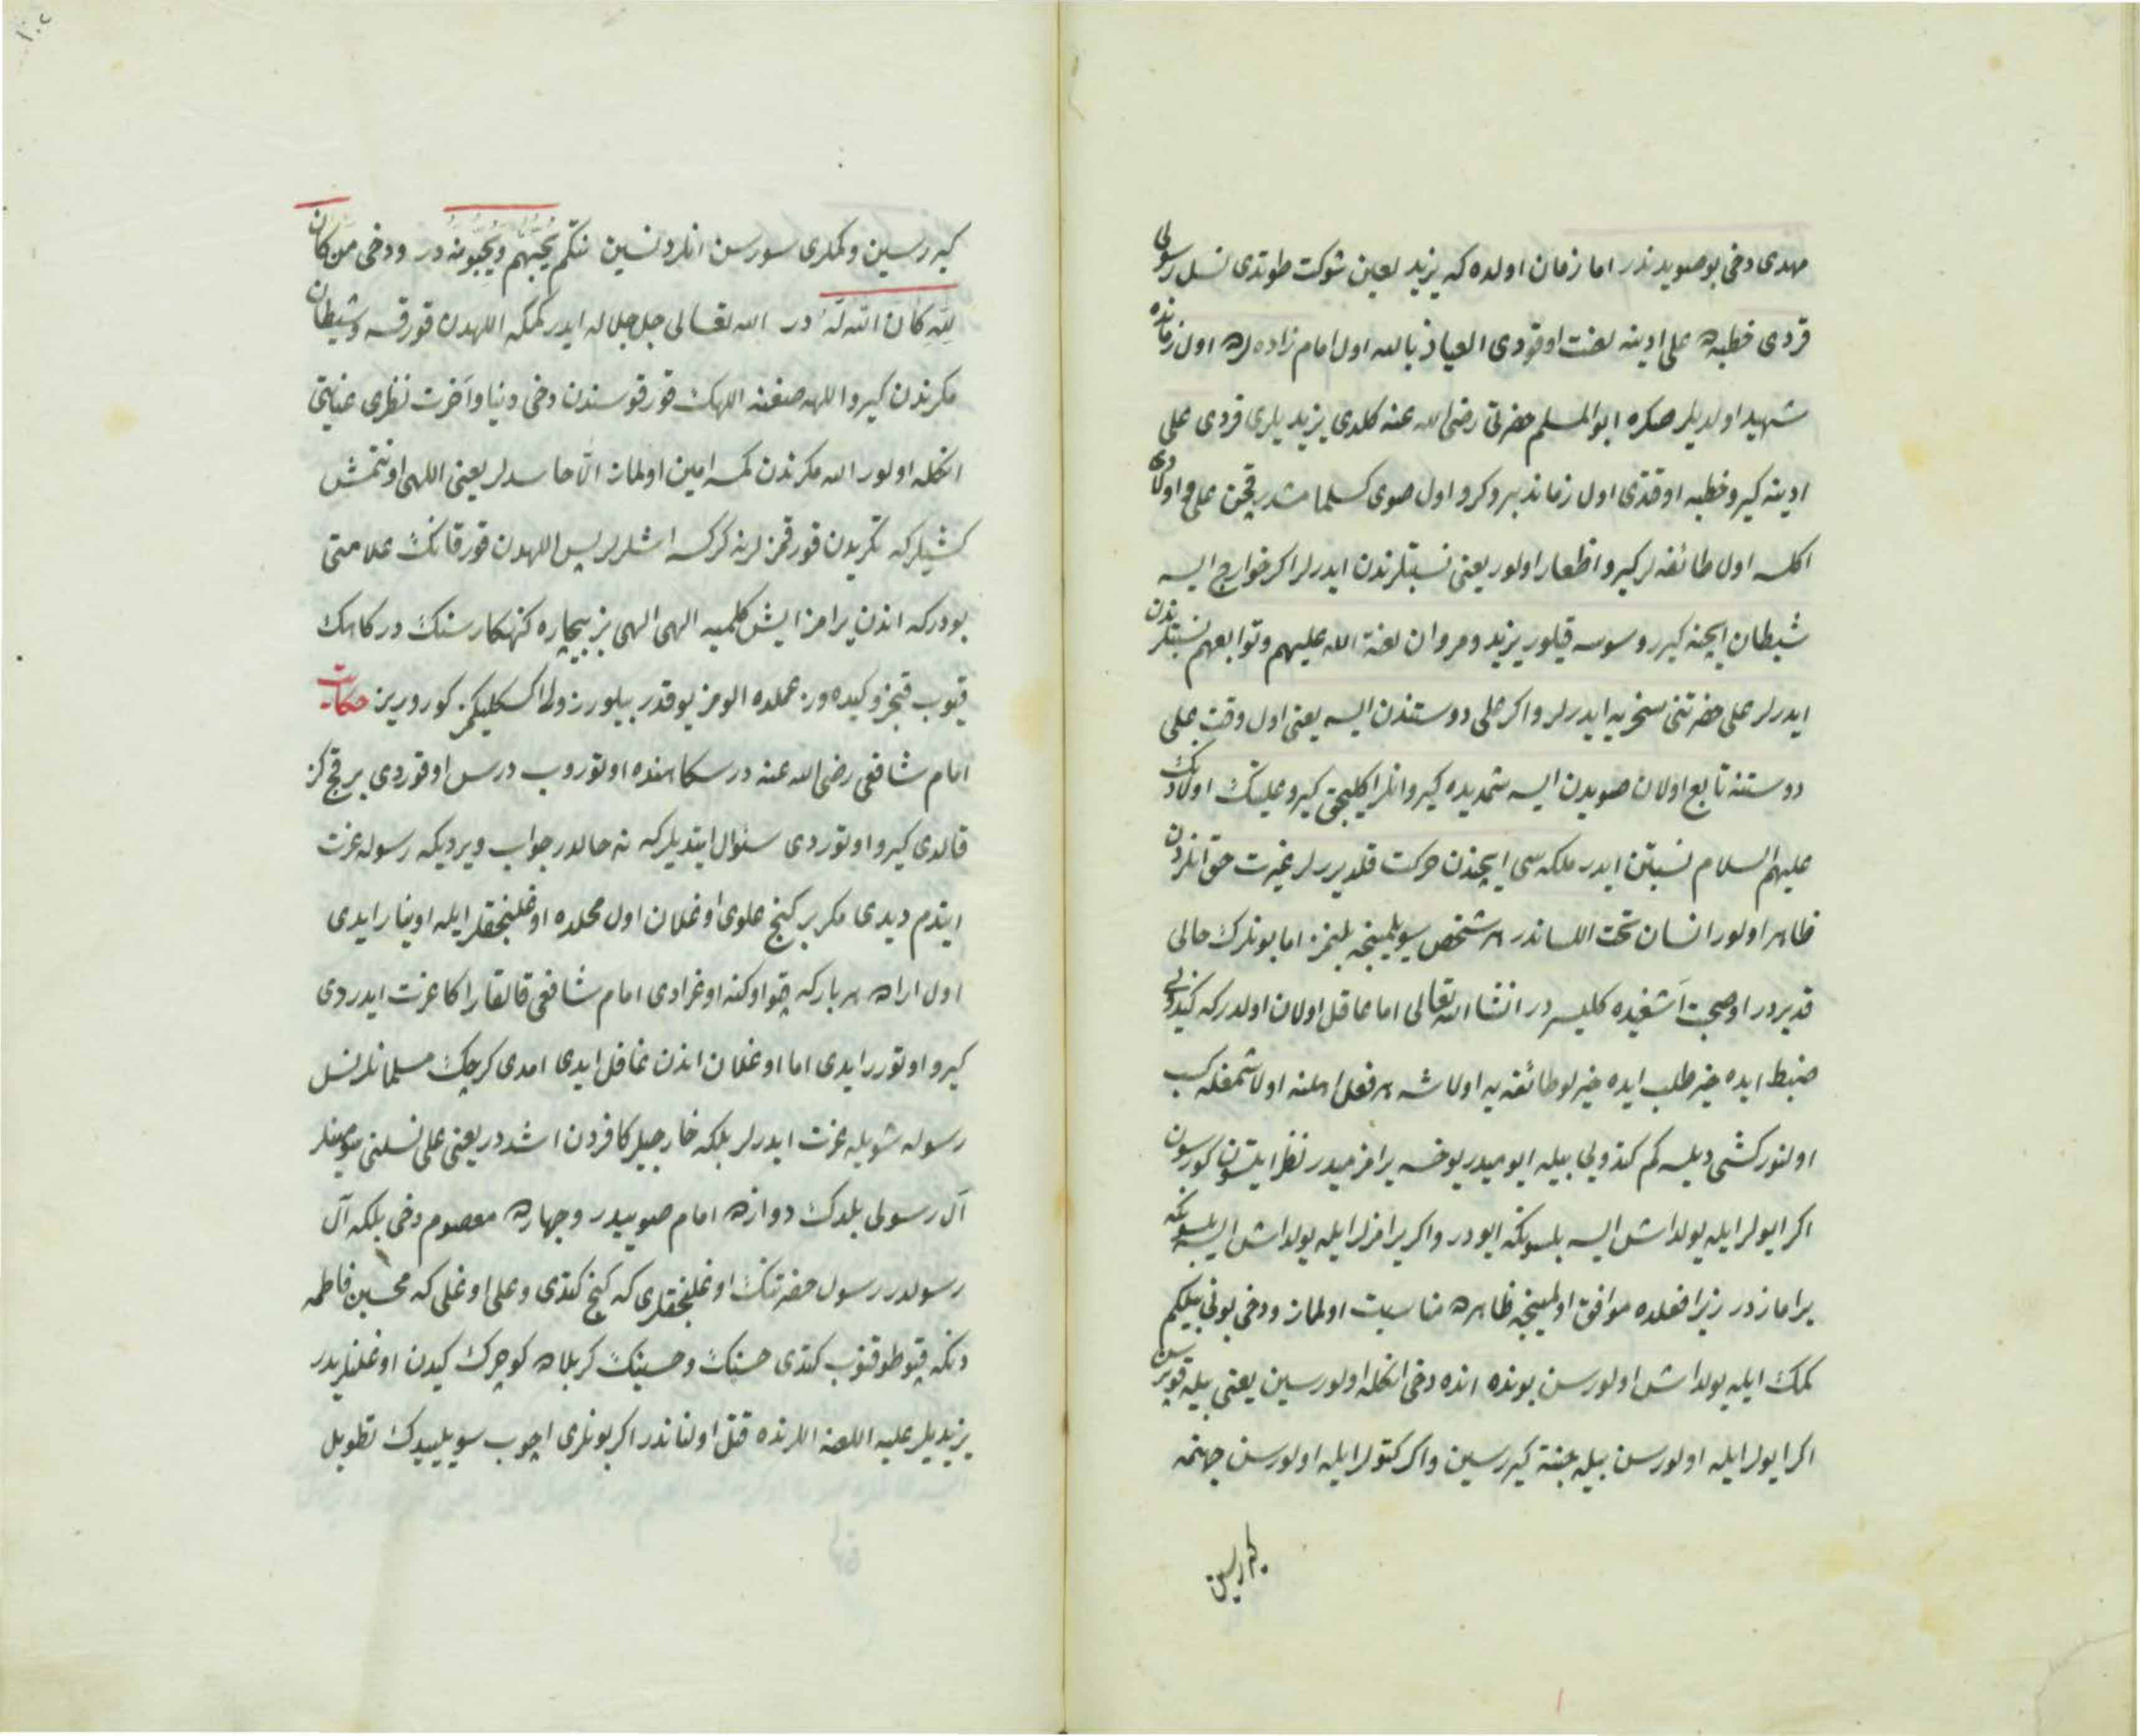 مهدی دخی بو صویدندر اما زمان اولده که یزید لعین شوکت طوتدی نسل رسولی
قردی خطبه‌ده علی ادینه لعنت اوقودی العیاذ بالله اول امام زاده‌لر اول زمانده
شهید اولدیلر صکره ابوالمسلم حضرتی رضی الله عنه کلدی یزیدیلری قردی علی
ادینه کیرو خطبه اوقتدی اول زماندنبرو کرو اول صوی کسلمامشدر قچن علی اولادی
اکلسه اول طائفه لر کیرو اظهار اولور یعنی نسبتلرندن ایدرلر اکر خوارج ایسه
شیطان ایچنه کیرر وسوسه قیلور یزید ومروان لعنة الله علیهم وتوابعهم نسبتلرندن
ایدرلر علی حضرتنی سخریه ایدرلر واکر علی دوستندن ایسه یعنی اول وقت علی
دوستنه تابع اولان صویدن ایسه شمدیده کیرو انلر اکلیجق کیرو علینک اولادنک
علیهم السلام نسبتن ایدر ملکه‌سی ایچندن حرکت قلدیررلر غیرت حق انلردن
ظاهر اولور انسان تحت اللساندر هر شخص سویلمینجه بلنمز اما بونلرک حالی
قدیردر اوصحت اشغیده کلیسر در انشاالله تعالی اما عاقل اولان اولدر که کندوی
ضبط ایده خیر طلب ایده خیرلو طائفه یه اولاشه هر فعل اهلنه اولاشمغله کسب
اولنور کشی دیلسه کم کندولی بیله ایومیدر یوخسه یرامزمیدر نظر ایتسون کورسون
اکر ایولر ایله یولداش ایسه بلسونکه ایودر واکر یرامزلر ایله یولداش ایسه بلسونکه
یرامازدر زیرا فعلده موافق اولمینجه ظاهرده مناسبت اولماز ودخی بونی بیلکم
کمک ایله یولداش اولورسن بونده انده دخی انکله اولورسین یعنی بیله قوپرسن
اکر ایولر ایله اولورسن بیله جنته کیررسین واکر کتولر ایله اولورسن جهنمه
کیررسین
کیررسین وکملری سورسن انلردنسین نتکم یحبهم ویحبونه در ودخی من کان
لله کان الله له در الله تعالی جل جلاله ایدر کمکه اللهدن قورقسه وشیطان
مکرندن کیرو اللهه صغنه اللهک قورقوسندن دخی دنیا واخرت نظری عنایتی
انکله اولور الله مکرندن کمسه امین اولماز الا حاسدلر یعنی اللهی اونتمش
کشیلرکه تکریدن قورقمزلر نه کرکسه اشلرلر پس اللهدن قورقانک علامتی
بودرکه اندن یرامز ایش کلمیه الهی الهی بز بیچاره کنهکار سنک درکاهک
قیوب قنجزو کیده‌وز عملده الومز یوقدر بیلورز ولی اکسکلیکمز کورویرین حکایت
امام شافعی رضی الله عنه درسکاهنده اوتوروب درس اوقوردی بر قچ کز
قالدی کیرو اوتوردی سئوال ایتدیلرکه نه حالدر جواب ویردیکه رسوله عزت
ایتدم دیدی مکر بر کنج علوی اوغلان اول محلده اوغلنجقلر ایله اوینار ایدی
اول اراده هر بارکه چو اوکنه اوغرادی امام شافعی قالقار اکا عزت ایدردی
کیرو اوتورر ایدی اما اوغلان اندن غافل ایدی امدی کرچک مسلمانلر نسل
رسوله شویله عزت ایدرلر بلکه خارجیلر کافردن اشددر یعنی علی نسلنی سومینلر
آل رسولی بلدک دوازده امام صوییدر وچهارده معصوم دخی بلکه آل
رسولدر رسول حضرتنک اوغلنجقلری که کنج کتدی وعلی اوغلی که محسین فاطمه
دنکه قپو طوقنوب کتدی حسنک وحسینک کربلاده کوچرک کیدن اوغلنلریدر
یزیدیلر علیه اللعنه اللرنده قتل اولناندر اکر بونلری اچوب سویلییدک تطویل